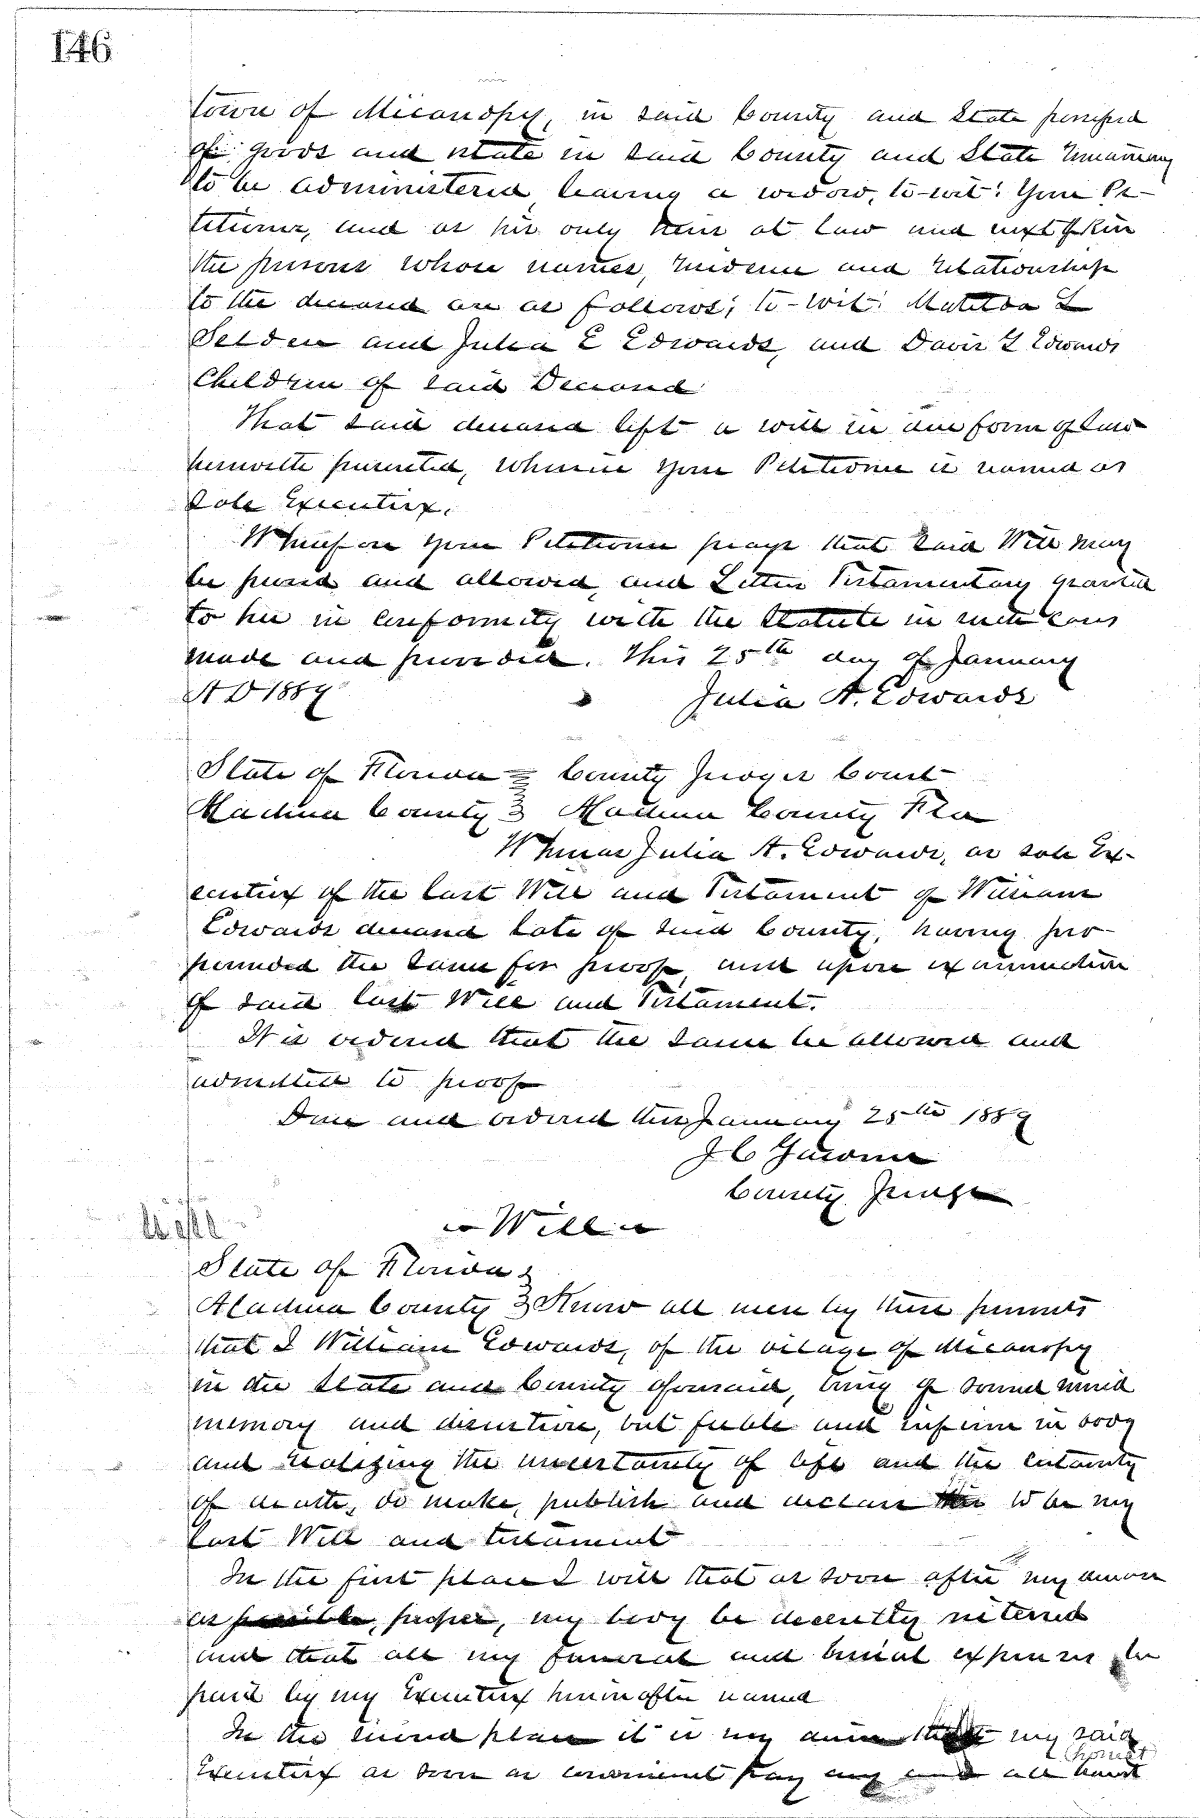 146
town of Micanopy, in said County and State possessed
of goods and estate in said County and State remaining
to be administered, leaving a widow, to-wit: Your Pe-
titioner, and as his only heirs at law and next of Kin
the persons whose names, residence and relationship
to the deceased are as follows; to-wit: Matilda L
Selden and Julia E Edwards, and Davis G Edwards
Children of said Deceased
That said deceased left a will in due form of law
herewith presented, wherein your Petitioner is named as
sole Executrix.
Wherefore your Petitioner prays that said Will may
be proved and allowed, and Letters Testamentary granted
to her in conformity with the Statute in such cases
made and provided. This 25th day of January
A D 1889
Julia A. Edwards
State of Florida } County Judges Court
Alachua County } Alachua County Fla
Whereas Julia A. Edwards, as sole Ex-
ecutrix of the last Will and Testament of William
Edwards deceased late of said County, having pro-
pounded the same for proof, and upon examination
of said last Will and Testament.
It is ordered that the same be allowed and
admitted to proof
Done and ordered this January 25th 1889
J C Gardner
County Judge
Will
Will
State of Florida }
Alachua County } Know all men by these presents
that I William Edwards, of the village of Micanopy
in the State and County aforesaid, being of sound mind
memory and discretion, but feeble and infirm in body
and realizing the uncertainty of life and the certainty
of death, do make, publish and declare this to be my
last Will and testament
In the first place I will that as soon after my decease
as possible, proper, my body be decently interred
and that all my funeral and burial expenses be
paid by my Executrix hereinafter named
In the second place it is my desire that my said
Executrix as soon as convenient pay any and all honest
(honest)